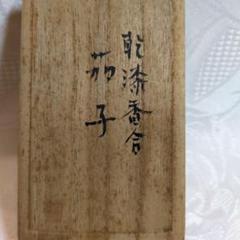 乾漆香合
茄子